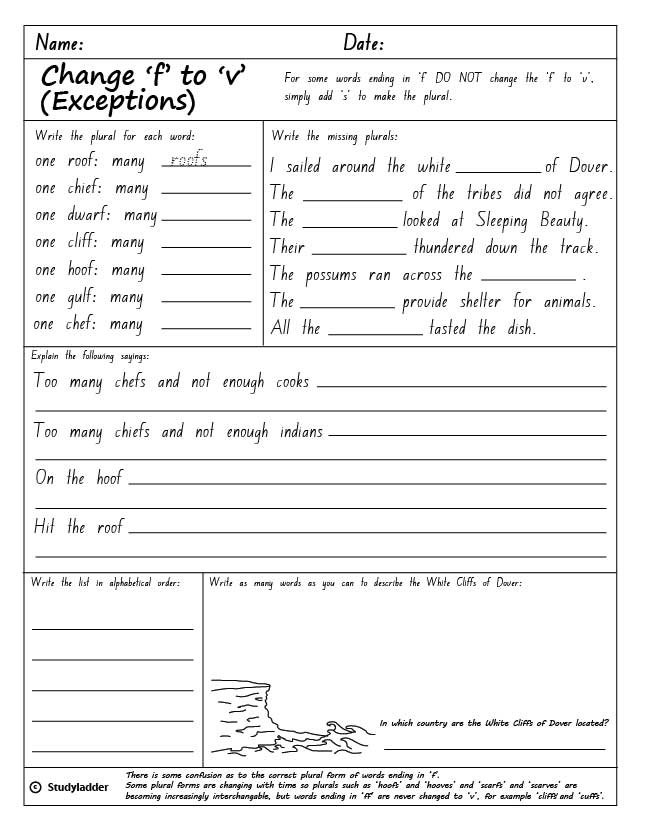 Name: Date:
Change ‘f’ to ‘v’
(Exceptions)
For some words ending in ‘f’ DO NOT change the ‘f’ to ‘v’,
simply add ‘s’ to make the plural.
Write the plural for each word:
one roof: many roofs
one chief: many
one dwarf: many
one cliff: many
one hoof: many
one gulf: many
one chef: many
Write the missing plurals:
I sailed around the white __________ of Dover.
The __________ of the tribes did not agree.
The __________ looked at Sleeping Beauty.
Their __________ thundered down the track.
The possums ran across the __________ .
The __________ provide shelter for animals.
All the __________ tasted the dish.
Explain the following sayings:
Too many chefs and not enough cooks
Too many chiefs and not enough indians
On the hoof
Hit the roof
Write the list in alphabetical order:
Write as many words as you can to describe the White Cliffs of Dover:
In which country are the White Cliffs of Dover located?
© Studyladder
There is some confusion as to the correct plural form of words ending in ‘f’.
Some plural forms are changing with time so plurals such as ‘hoofs’ and ‘hooves’ and ‘scarfs’ and ‘scarves’ are
becoming increasingly interchangable, but words ending in ‘ff’ are never changed to ‘v’, for example ‘cliffs’ and ‘cuffs’.